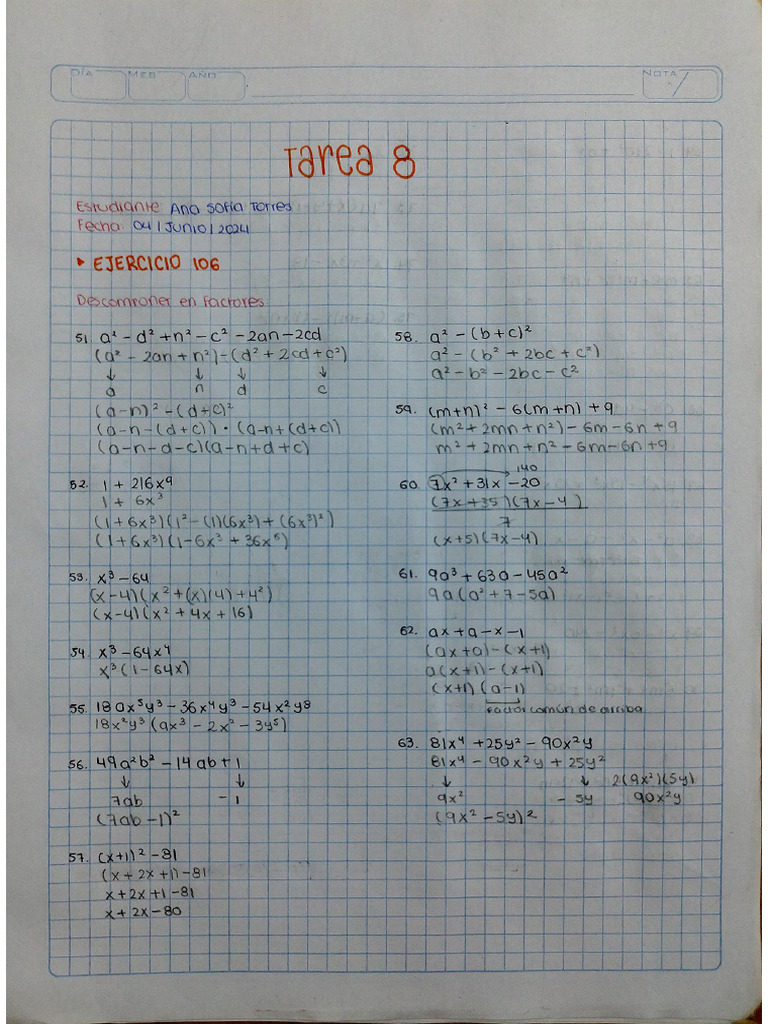 DÍA MES AÑO NOTA
Tarea 8
Estudiante: Ana Sofía Torres
Fecha: 04 / Junio / 2024
• EJERCICIO 106
Descomponer en factores
51. a² - d² + n² - c² - 2an - 2cd
(a² - 2an + n²) - (d² + 2cd + c²)
↓ ↓ ↓ ↓
a n d c
(a-n)² - (d+c)²
(a-n-(d+c)) • (a-n+(d+c))
(a-n-d-c)(a-n+d+c)
52. 1 + 216x9
1 + 6x³
(1+6x³)(1² - (1)(6x³) + (6x³)²)
(1+6x³)(1-6x³ + 36x⁶)
53. x³ - 64
(x-4)(x² + (x)(4) + 4²)
(x-4)(x² + 4x + 16)
54. x³ - 64x⁴
x³(1-64x)
55. 18ax⁵y³ - 36x⁴y³ - 54x²y⁸
18x²y³(ax³ - 2x² - 3y⁵)
56. 49a²b² - 14ab + 1
↓ ↓
7ab - 1
(7ab - 1)²
57. (x+1)² - 81
(x + 2x + 1) - 81
x + 2x + 1 - 81
x + 2x - 80
58. a² - (b+c)²
a² - (b² + 2bc + c²)
a² - b² - 2bc - c²
59. (m+n)² - 6(m+n) + 9
(m² + 2mn + n²) - 6m - 6n + 9
m² + 2mn + n² - 6m - 6n + 9
140
60. 7x² + 31x - 20
(7x+35)(7x-4)
7
(x+5)(7x-4)
61. 9a³ + 63a - 45a²
9a(a² + 7 - 5a)
62. ax + a - x - 1
(ax+a) - (x+1)
a(x+1) - (x+1)
(x+1)(a-1)
factor común de arriba
63. 81x⁴ + 25y² - 90x²y
81x⁴ - 90x²y + 25y²
↓ ↓ 2(9x²)(5y)
9x² - 5y 90x²y
(9x² - 5y)²